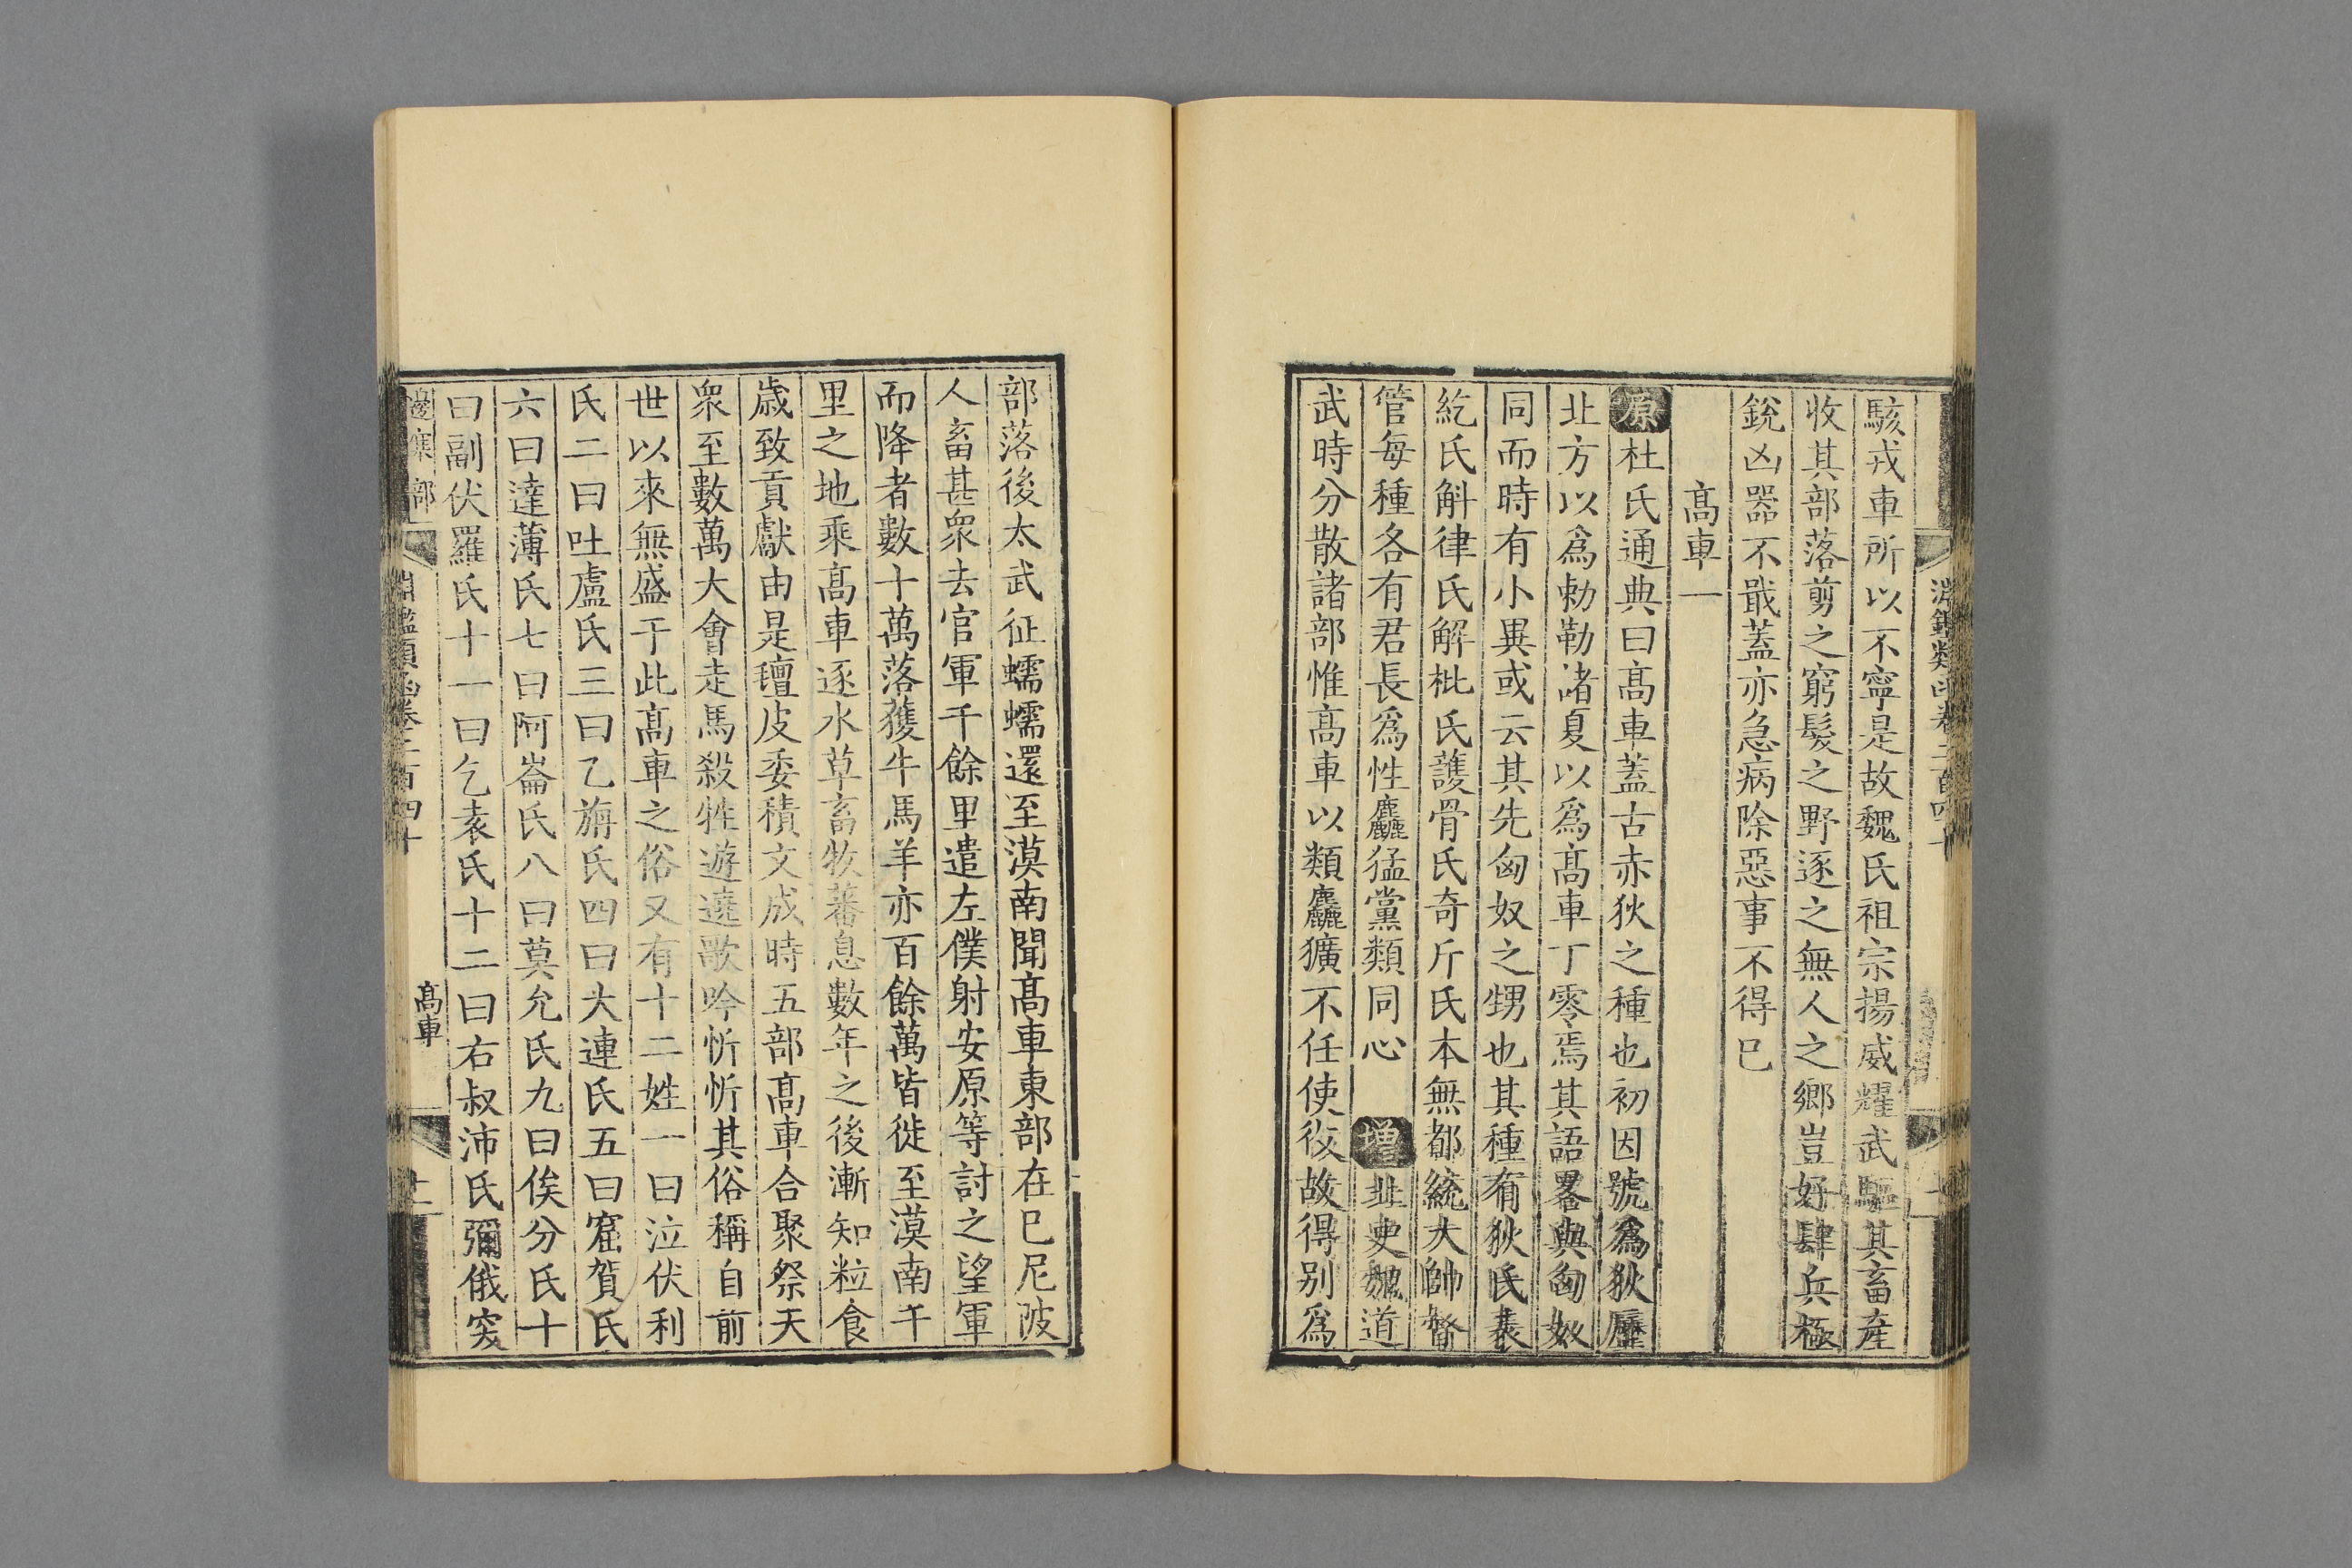 駭戎車所以不寧是故魏氏祖宗揚威耀武驅其畜產
收其部落剪之窮髮之野逐之無人之鄉豈好肆兵極
銳凶器不戢蓋亦急病除惡事不得已
髙車一
原杜氏通典曰髙車蓋古赤狄之種也初因號爲狄歷
北方以爲勅勒諸夏以爲髙車丁零焉其語畧與匈奴
同而時有小異或云其先匈奴之甥也其種有狄氏袁
紇氏斛律氏解枇氏護骨氏奇斤氏本無都統大帥督
管每種各有君長爲性麤猛黨類同心 增北史魏道
武時分散諸部惟髙車以類麤獷不任使役故得别爲
部落後太武征蠕蠕還至漠南聞髙車東部在巳尼陂
人畜甚衆去官軍千餘里遣左僕射安原等討之望軍
而降者數十萬落獲牛馬羊亦百餘萬皆徙至漠南千
里之地乘髙車逐水草畜牧蕃息數年之後漸知粒食
歳致貢獻由是氊皮委積文成時五部髙車合聚祭天
衆至數萬大會走馬殺牲遊遶歌吟忻忻其俗稱自前
世以來無盛于此髙車之俗又有十二姓一曰泣伏利
氏二曰吐盧氏三曰乙旃氏四曰大連氏五曰窟賀氏
六曰達薄氏七曰阿崙氏八曰莫允氏九曰俟分氏十
曰副伏羅氏十一曰乞袁氏十二曰右叔沛氏彌俄突
邊塞部 淵鑑類函卷二百四十 髙車